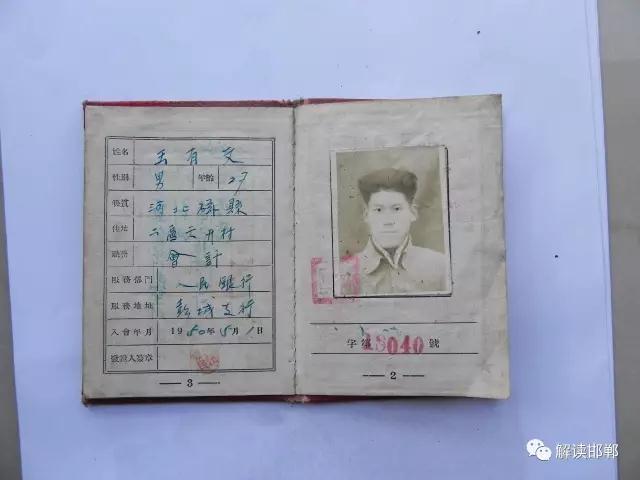 姓名 王有文
性别 男 年齡 27
籍貫 河北磁縣
住址 六區六井村
職務 會計
服務部門 人民銀行
服務地址 彭城支行
入會年月 1950年5月1日
發證人簽章
— 3 —
字第 18040 號
— 2 —
解读邯郸